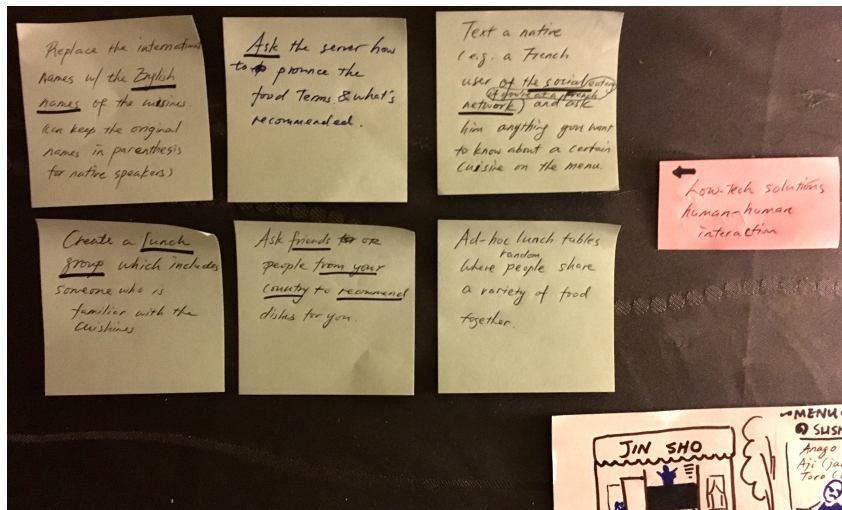 Replace the international
names w/ the English
names of the cuisines.
(can keep the original
names in parenthesis
for native speakers)
Ask the server how
to pronnce the
food Terms & what's
recommended.
Text a native
(e.g. a French
user of the social eating
if you're at a French
network) and ask
him anything you want
to know about a certain
cuisine on the menu.
Low-Tech solutions
human-human
interaction
Create a lunch
group which includes
someone who is
familiar with the
cuishines
Ask friends or
people from your
country to recommend
dishes for you.
Ad-hoc lunch tables
where random people share
a variety of food
together.
JIN SHO
MENU
SUSH
Anago
Aji (ja
Toro (